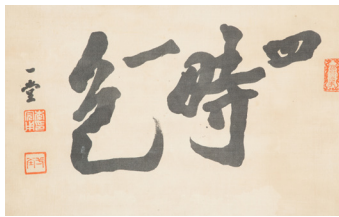 四時一色
一堂